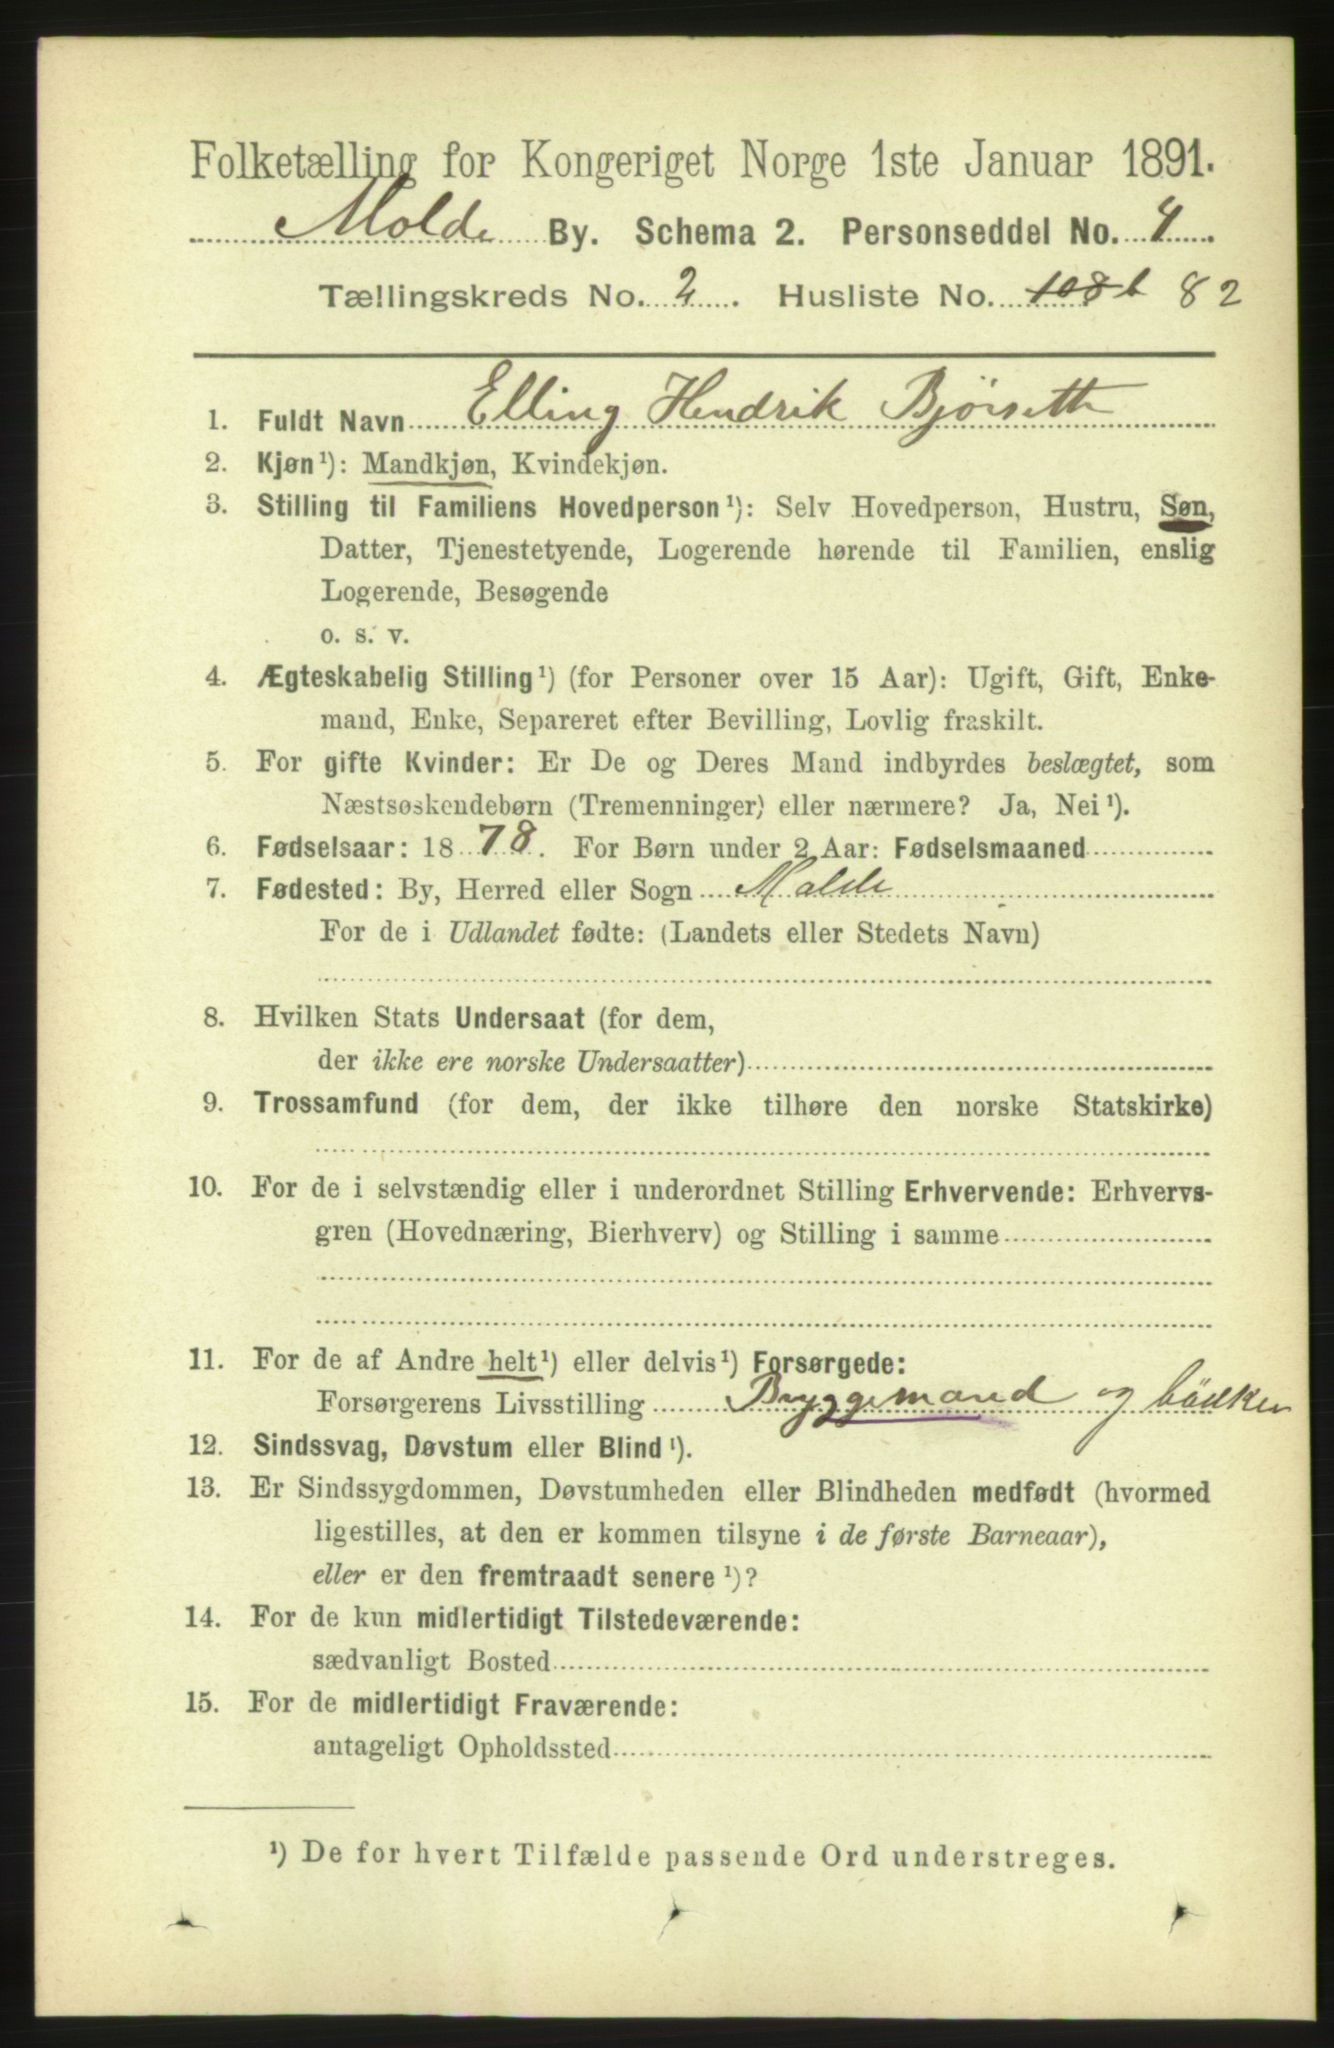 Folketælling for Kongeriget Norge 1ste Januar 1891.
Molde By. Schema 2. Personseddel No. 4
Tællingskreds No. 2. Husliste No. 108 b 82
1. Fuldt Navn Elling Hendrik Bjørseth
2. Kjøn¹): Mandkjøn, Kvindekjøn.
3. Stilling til Familiens Hovedperson¹): Selv Hovedperson, Hustru, Søn,
Datter, Tjenestetyende, Logerende hørende til Familien, enslig
Logerende, Besøgende
o. s. v.
4. Ægteskabelig Stilling¹) (for Personer over 15 Aar): Ugift, Gift, Enke-
mand, Enke, Separeret efter Bevilling, Lovlig fraskilt.
5. For gifte Kvinder: Er De og Deres Mand indbyrdes beslægtet, som
Næstsøskendebørn (Tremenninger) eller nærmere? Ja, Nei¹).
6. Fødselsaar: 1878. For Børn under 2 Aar: Fødselsmaaned
7. Fødested: By, Herred eller Sogn Molde
For de i Udlandet fødte: (Landets eller Stedets Navn)
8. Hvilken Stats Undersaat (for dem,
der ikke ere norske Undersaatter)
9. Trossamfund (for dem, der ikke tilhøre den norske Statskirke)
10. For de i selvstændig eller i underordnet Stilling Erhvervende: Erhvervs-
gren (Hovednæring, Bierhverv) og Stilling i samme
11. For de af Andre helt¹) eller delvis¹) Forsørgede:
Forsørgerens Livsstilling Bryggemand og bödker
12. Sindssvag, Døvstum eller Blind¹).
13. Er Sindssygdommen, Døvstumheden eller Blindheden medfødt (hvormed
ligestilles, at den er kommen tilsyne i de første Barneaar),
eller er den fremtraadt senere¹)?
14. For de kun midlertidigt Tilstedeværende:
sædvanligt Bosted
15. For de midlertidigt Fraværende:
antageligt Opholdssted
¹) De for hvert Tilfælde passende Ord understreges.